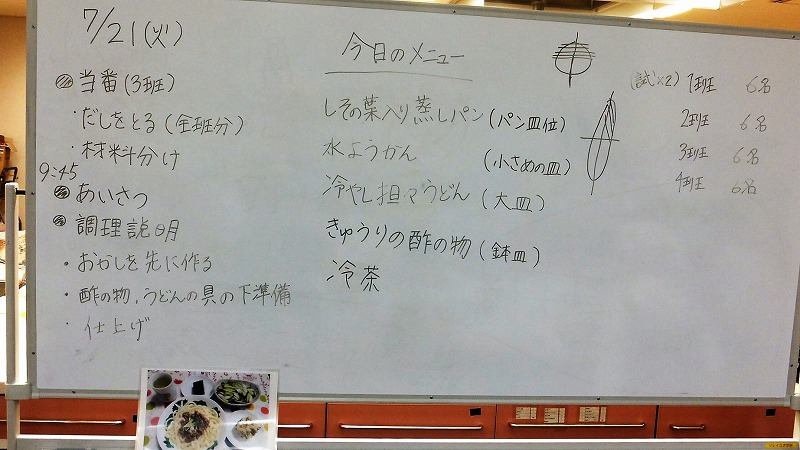 7/21(火)
当番(3班)
・だしをとる(全班分)
・材料分け
9:45
あいさつ
調理説明
・おかしを先に作る
・酢の物、うどんの具の下準備
・仕上げ
今日のメニュー
しその葉入り蒸しパン(パン皿位)
水ようかん(小さめの皿)
冷やし担々うどん(大皿)
きゅうりの酢の物(鉢皿)
冷茶
(試×2) 1班 6名
2班 6名
3班 6名
4班 6名